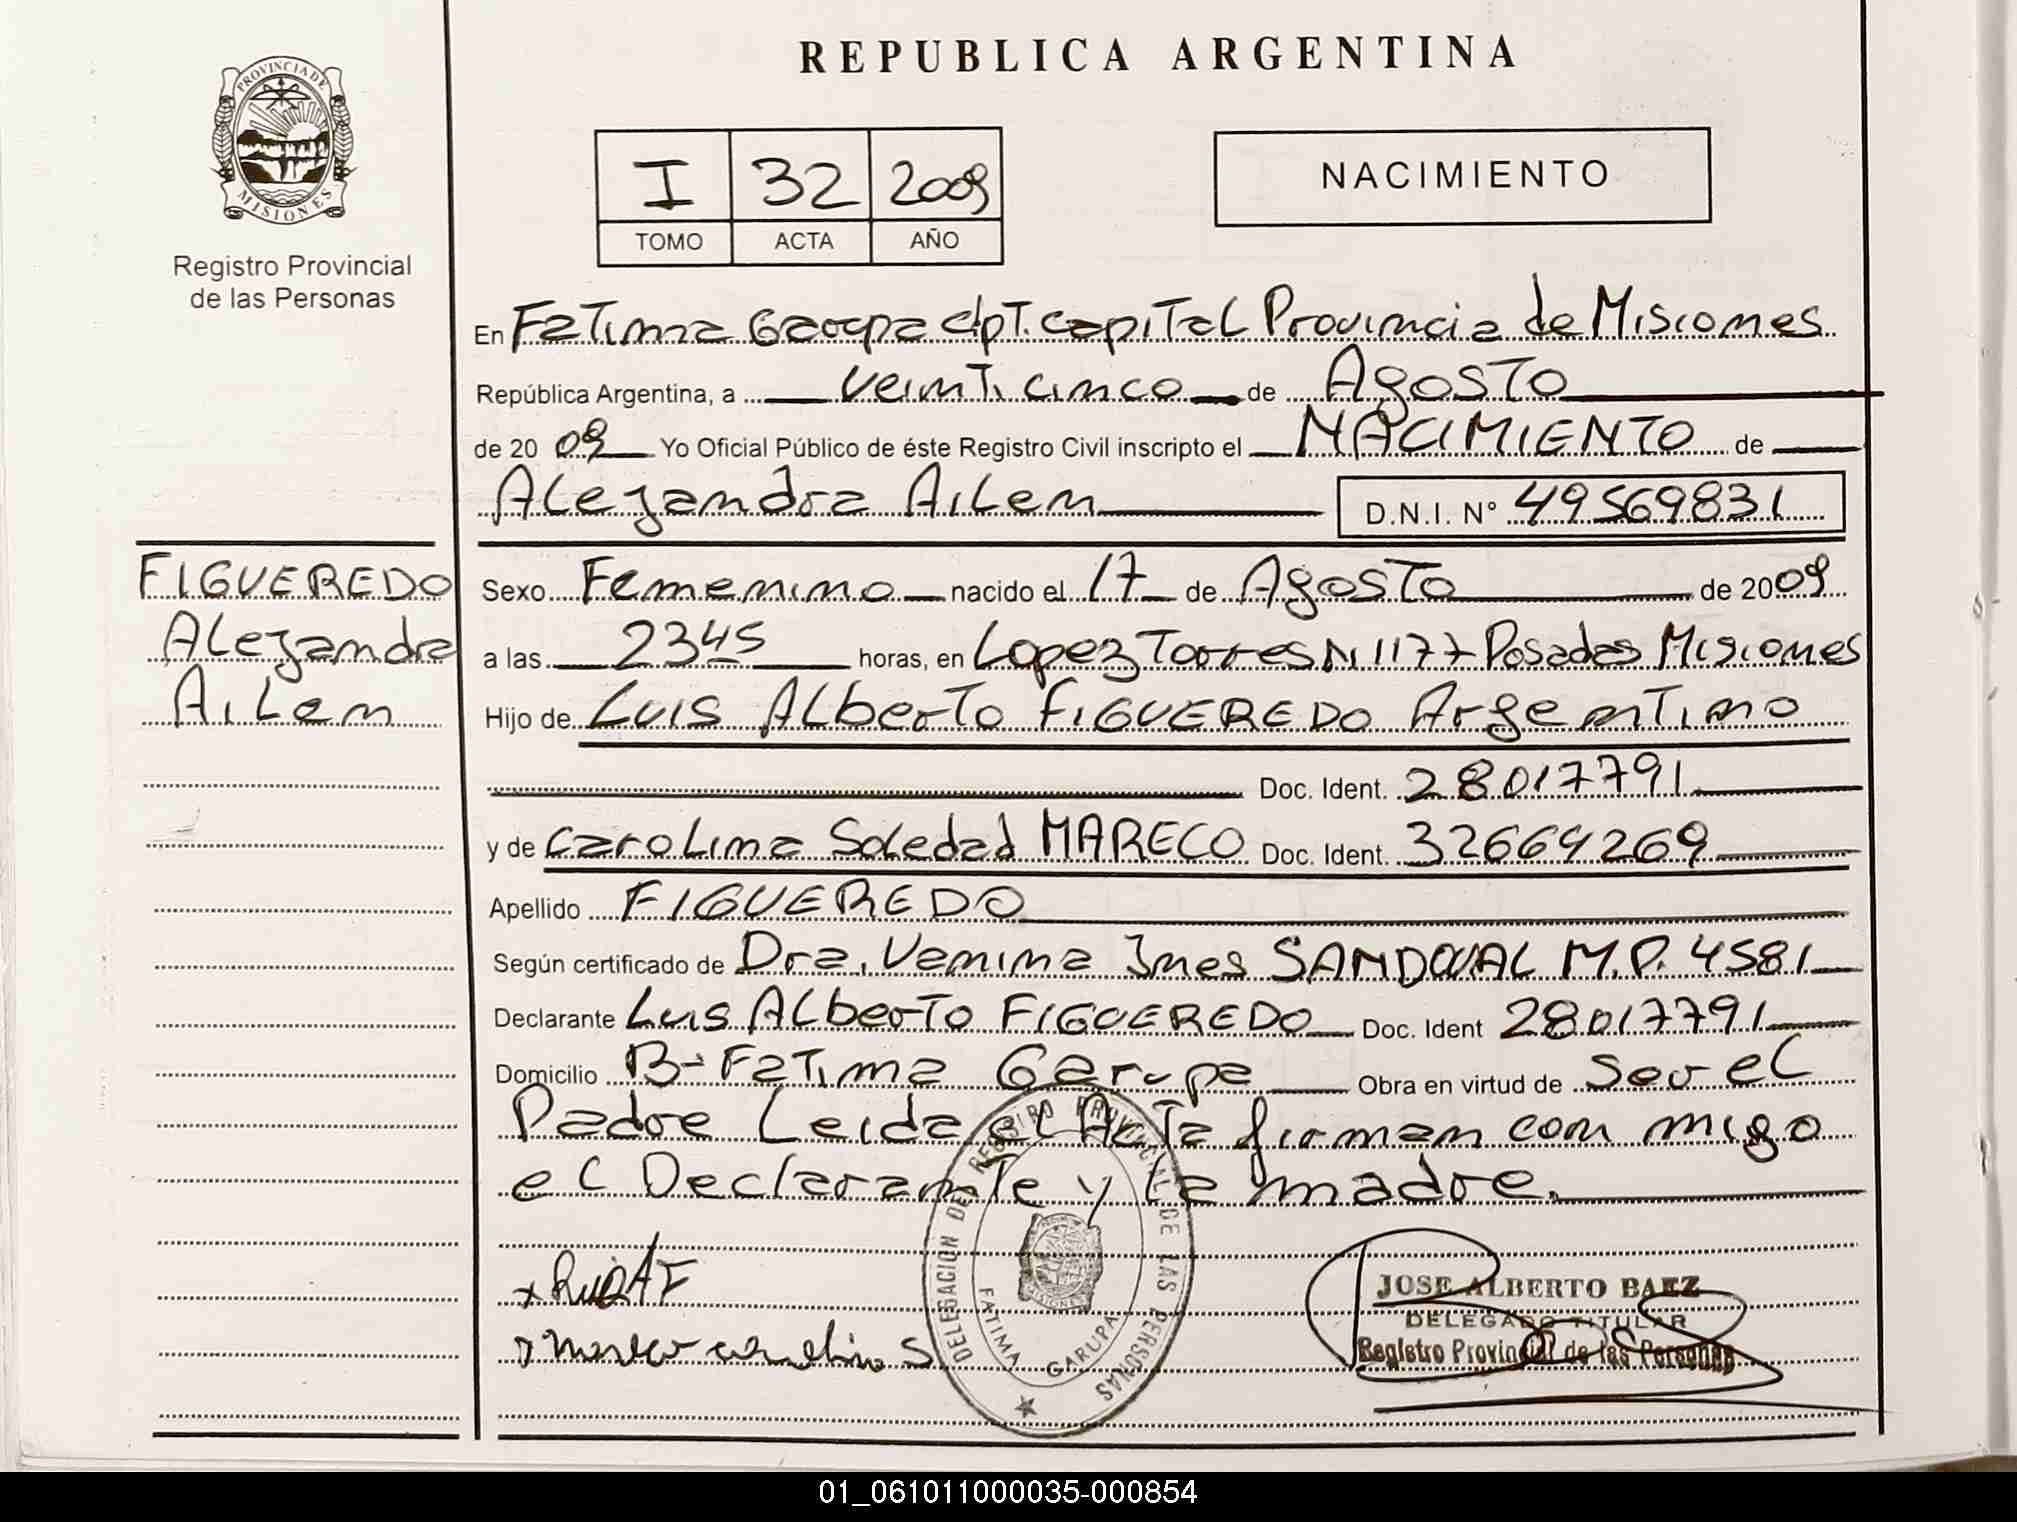 REPUBLICA ARGENTINA
PROVINCIA DE MISIONES
Registro Provincial
de las Personas
I 32 2009
TOMO ACTA AÑO
NACIMIENTO
En Fatima Garupa dpt. Capital Provincia de Misiones
República Argentina, a veinticinco de Agosto
de 2009 Yo Oficial Público de éste Registro Civil inscripto el NACIMIENTO de
Alejandra Ailen D.N.I. N° 49569831
FIGUEREDO
Alejandra
Ailen
Sexo Femenino nacido el 17 de Agosto de 2009
a las 2345 horas, en Lopez Torres N 1177 Posadas Misiones
Hijo de Luis Alberto FIGUEREDO Argentino
Doc. Ident. 28017791
y de Carolina Soledad MARECO Doc. Ident. 32664269
Apellido FIGUEREDO
Según certificado de Dra. Vanina Ines SANDOVAL M.P. 4581
Declarante Luis Alberto FIGUEREDO Doc. Ident 28017791
Domicilio B- Fatima Garupa Obra en virtud de ser el
Padre Leida el Acta firman con migo
el Declarante y la madre.
JOSE ALBERTO BAEZ
DELEGADO TITULAR
Registro Provincial de las Personas
DELEGACION DEL REGISTRO PROVINCIAL DE LAS PERSONAS
FATIMA GARUPA
01_061011000035-000854